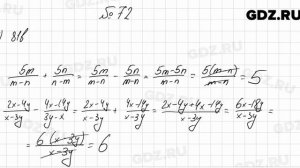 GDZ.RU
№ 72
818
5m/(m-n) + 5n/(n-m) = 5m/(m-n) - 5n/(m-n) = (5m-5n)/(m-n) = 5(m-n)/(m-n) = 5
(2x-4y)/(x-3y) - (4x-14y)/(3y-x) = (2x-4y)/(x-3y) + (4x-14y)/(x-3y) = (2x-4y+4x-14y)/(x-3y) = (6x-18y)/(x-3y) =
= 6(x-3y)/(x-3y) = 6
GDZ.RU